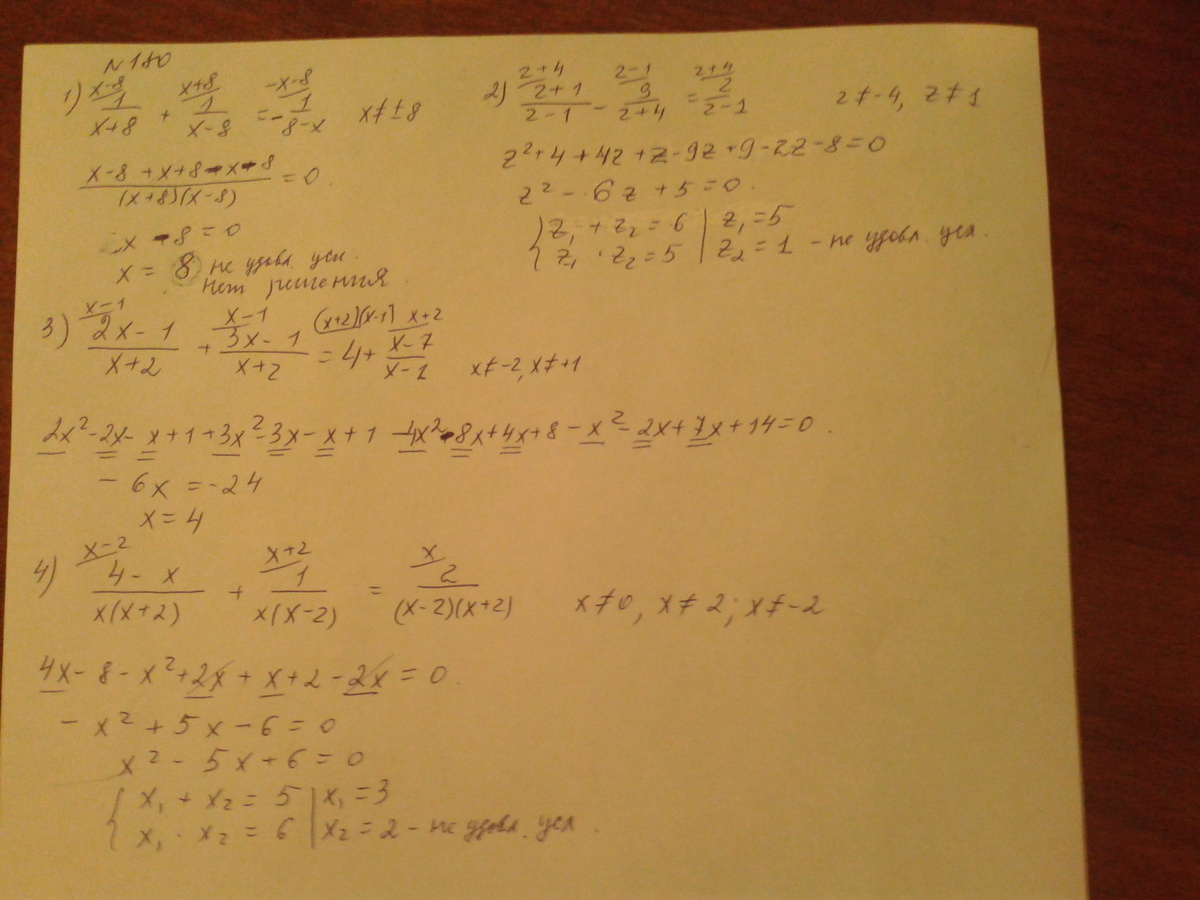 N180
1) x-8/ 1/(x+8) + x+8/ 1/(x-8) = -x-8/ -1/(8-x) x≠±8
(x-8+x+8-x-8)/((x+8)(x-8)) = 0.
x-8=0
x = 8 не удовл. усл.
Нет решения.
2) z+4/ (z+1)/(z-1) - z-1/ 9/(z+4) = z+4/ 2/(z-1) z≠-4, z≠1
z²+4+4z+z-9z+9-2z-8=0
z²-6z+5=0.
{ z₁+z₂=6 | z₁=5
{ z₁·z₂=5 | z₂=1 - не удовл. усл.
3) x-1/ (2x-1)/(x+2) + x-1/ (3x-1)/(x+2) = (x+2)(x-1)/ 4 + x+2/ (x-7)/(x-1) x≠-2, x≠+1
2x²-2x-x+1+3x²-3x-x+1-4x²-8x+4x+8-x²-2x+7x+14=0.
-6x=-24
x=4
4) x-2/ (4-x)/(x(x+2)) + x+2/ 1/(x(x-2)) = x/ 2/((x-2)(x+2)) x≠0, x≠2; x≠-2
4x-8-x²+2x+x+2-2x=0.
-x²+5x-6=0
x²-5x+6=0
{ x₁+x₂=5 | x₁=3
{ x₁·x₂=6 | x₂=2 - не удовл. усл.